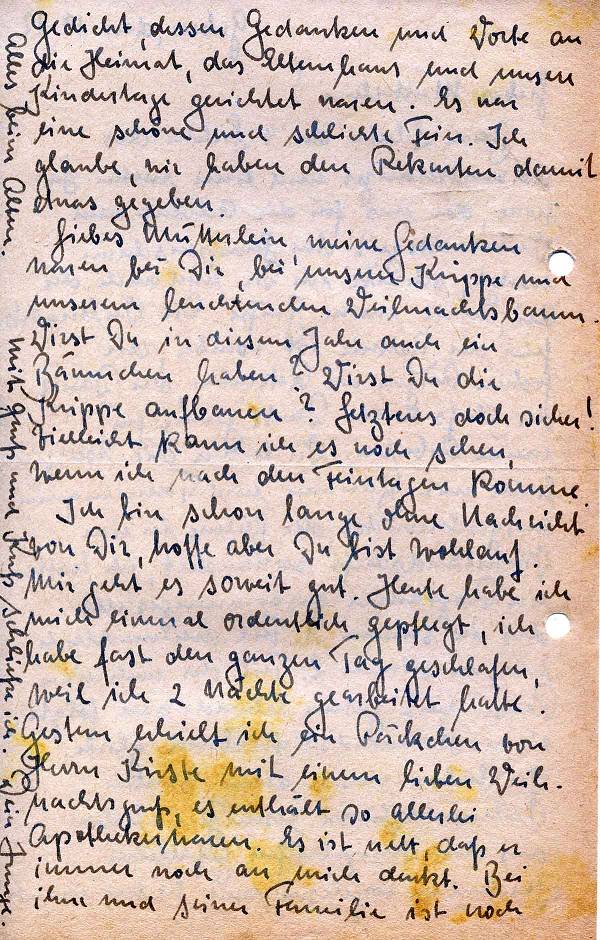 Gedicht, dessen Gedanken und Worte an
die Heimat, das Elternhaus und unsere
Kindertage gerichtet waren. Es war
eine schöne und schlichte Feier. Ich
glaube, wir haben den Rekruten damit
etwas gegeben.
Liebes Mütterlein, meine Gedanken
waren bei Dir, bei unserer Krippe und
unserem leuchtenden Weihnachtsbaum.
Wirst Du in diesem Jahr auch ein
Bäumchen haben? Wirst Du die
Krippe aufbauen? Letzteres doch sicher!
Vielleicht kann ich es noch sehen,
wenn ich nach den Feiertagen komme.
Ich bin schon lange ohne Nachricht
von Dir, hoffe aber Du bist wohlauf.
Mir geht es soweit gut. Heute habe ich
mich einmal ordentlich gepflegt, ich
habe fast den ganzen Tag geschlafen,
weil ich 2 Nächte gearbeitet hatte.
Gestern erhielt ich ein Päckchen von
Herrn Kirste mit einem lieben Weih-
nachtsgruß, es enthält so allerlei
Apothekerwaren. Es ist nett, daß er
immer noch an mich denkt. Bei
ihm und seiner Familie ist noch
Alles beim Alten.
Mit Gruß und Kuß schließe ich. Dein Junge.